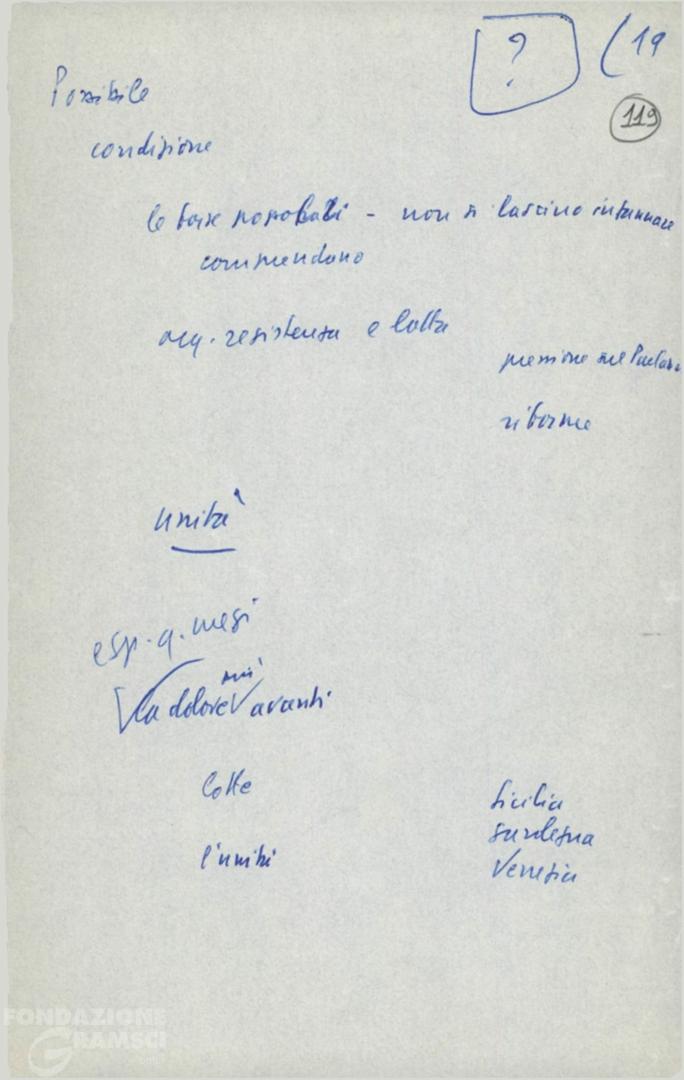 ?
(19
119
Possibile
condizione
le forze popolari - non si lascino ingannare
comprendano
org. resistenza e lotta
pressione sul Parlam.
riforme
unità
esp. q. mesi
più
là dove avanti
lotte
l'unità
Sicilia
Sardegna
Venezia
FONDAZIONE
GRAMSCI